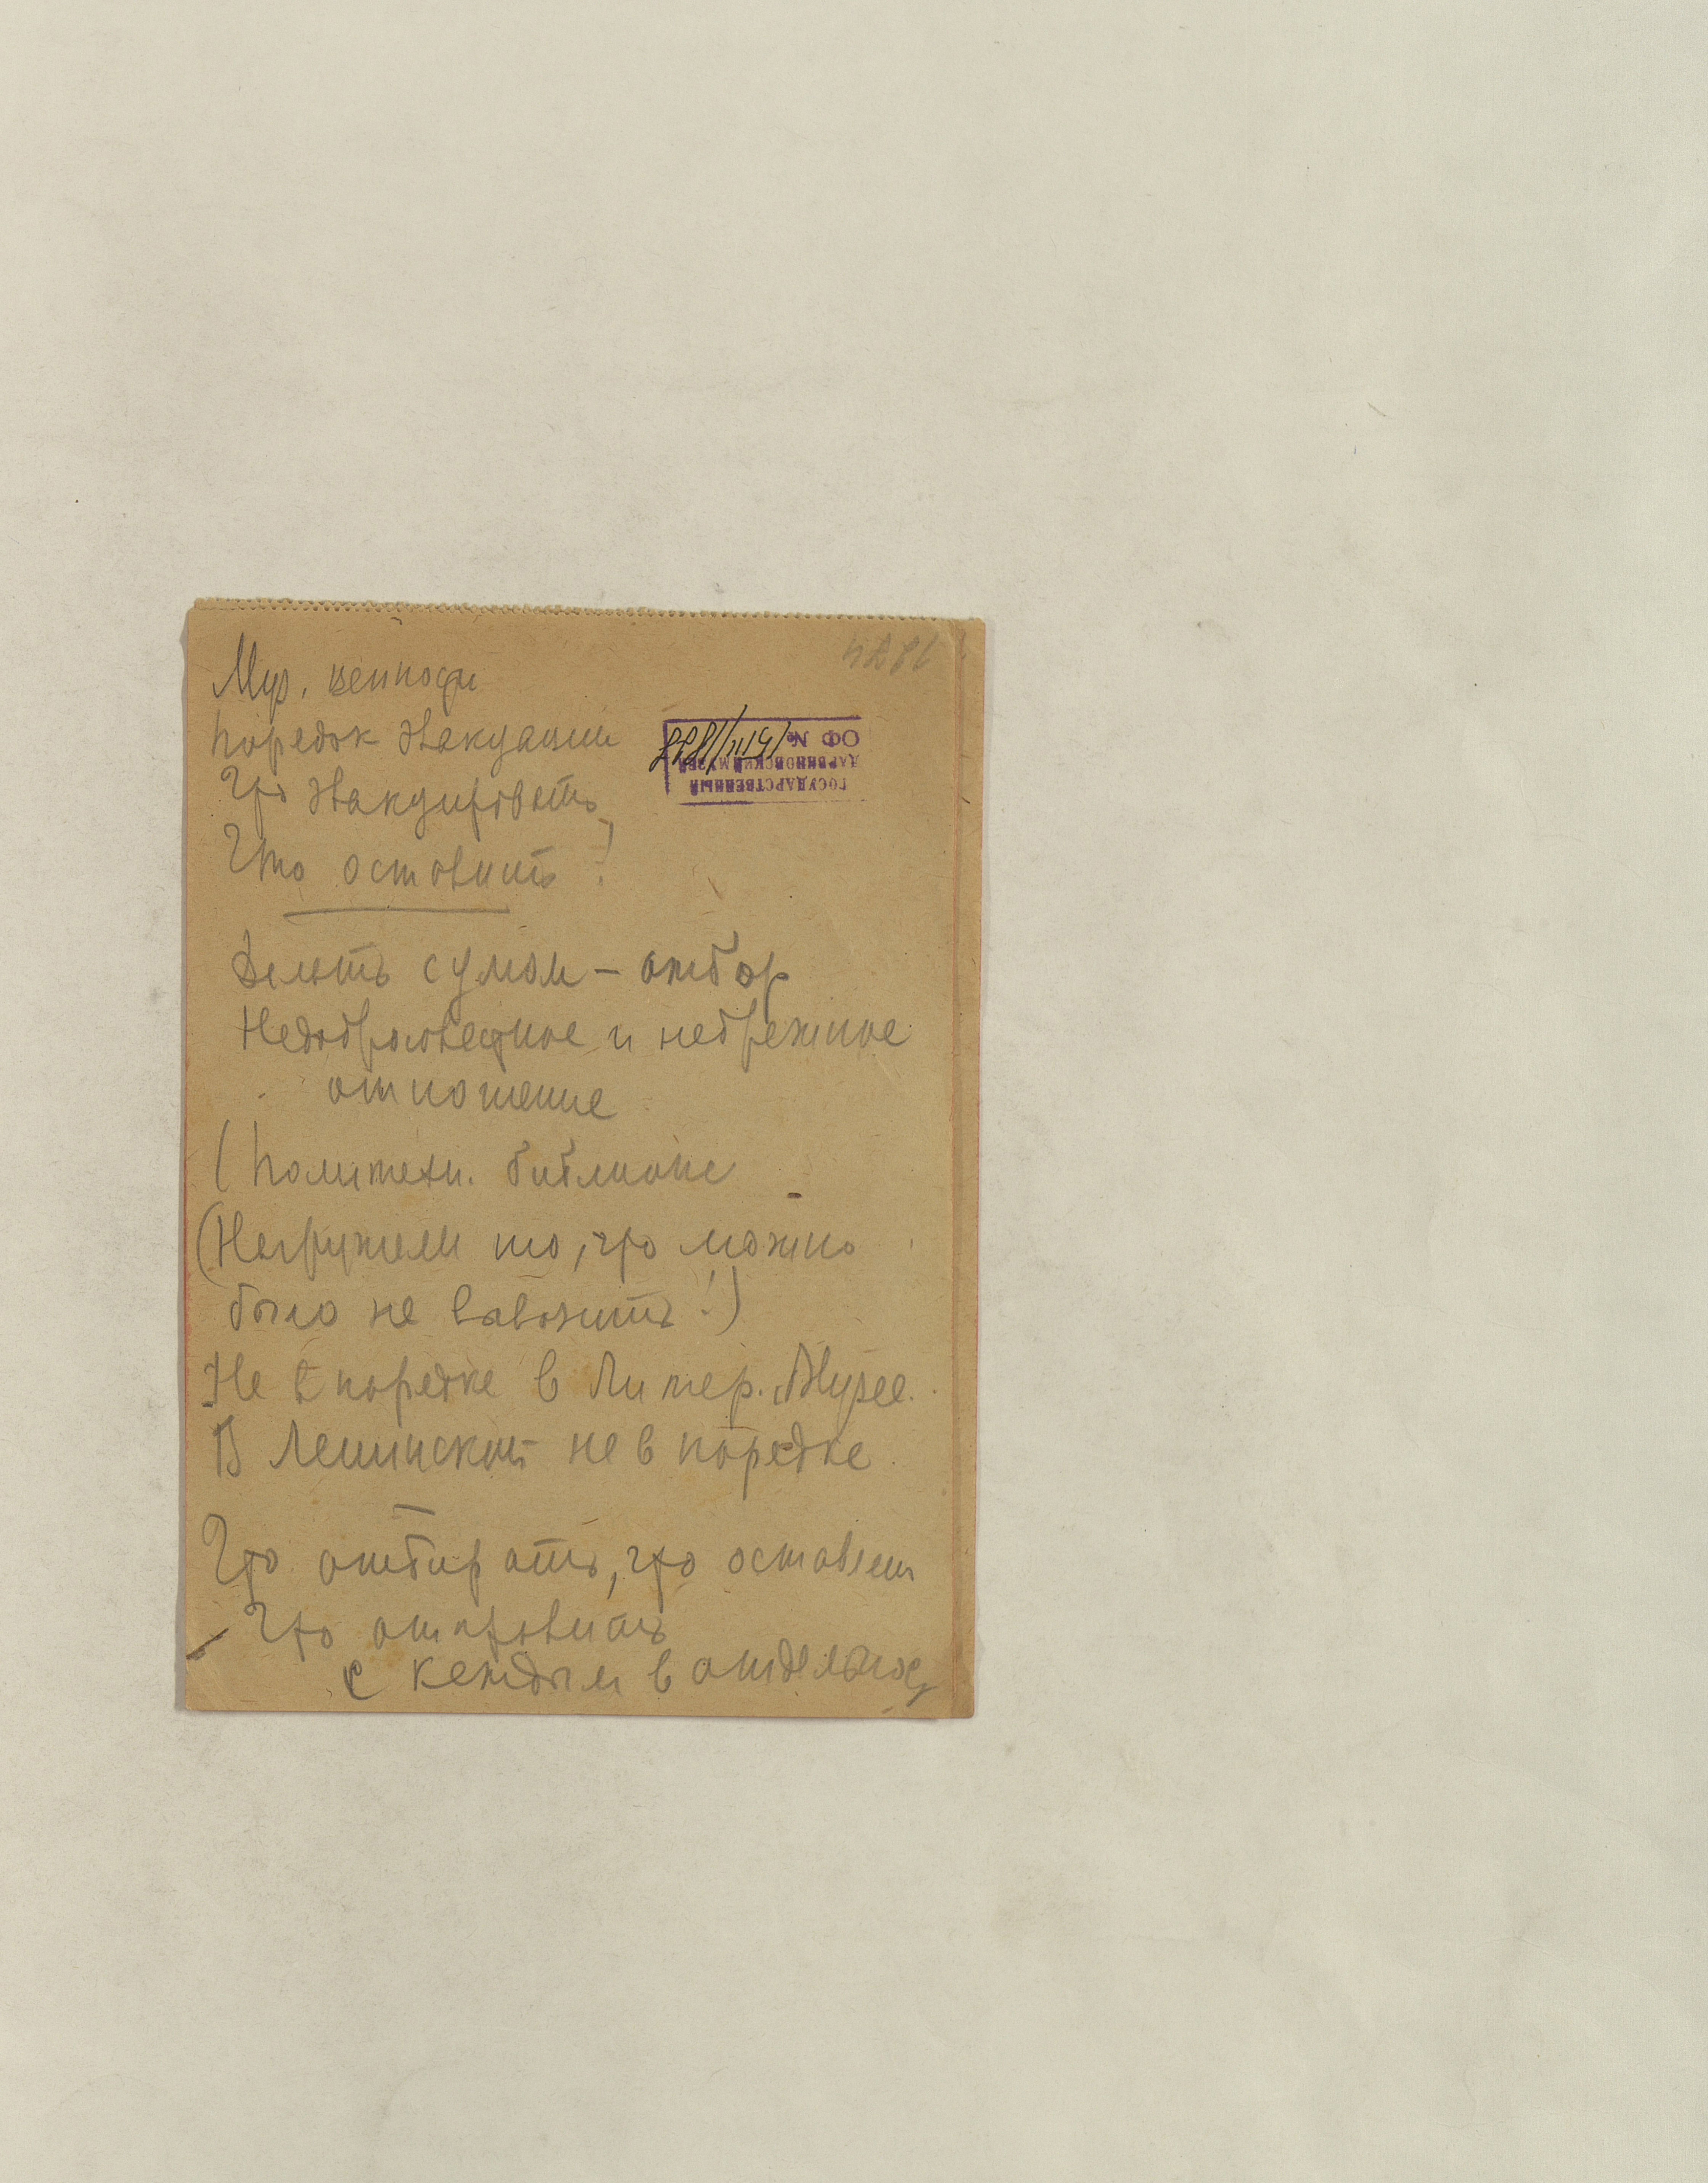 Муз. ценности
Порядок эвакуации
Что эвакуировать,
Что оставить?
Делать с умом – отбор
Недобросовестное и небрежное
отношение
(Политехн. библиоте
(Нагружали то, что можно
было не вывозить!)
Не в порядке в Литер. Музее.
В Ленинской не в порядке
Что отбирать, что оставлять
Что отправить
с каждым в отдельнос
ГОСУДАРСТВЕННЫЙ
ДАРВИНОВСКИЙ МУЗЕЙ
ОФ №